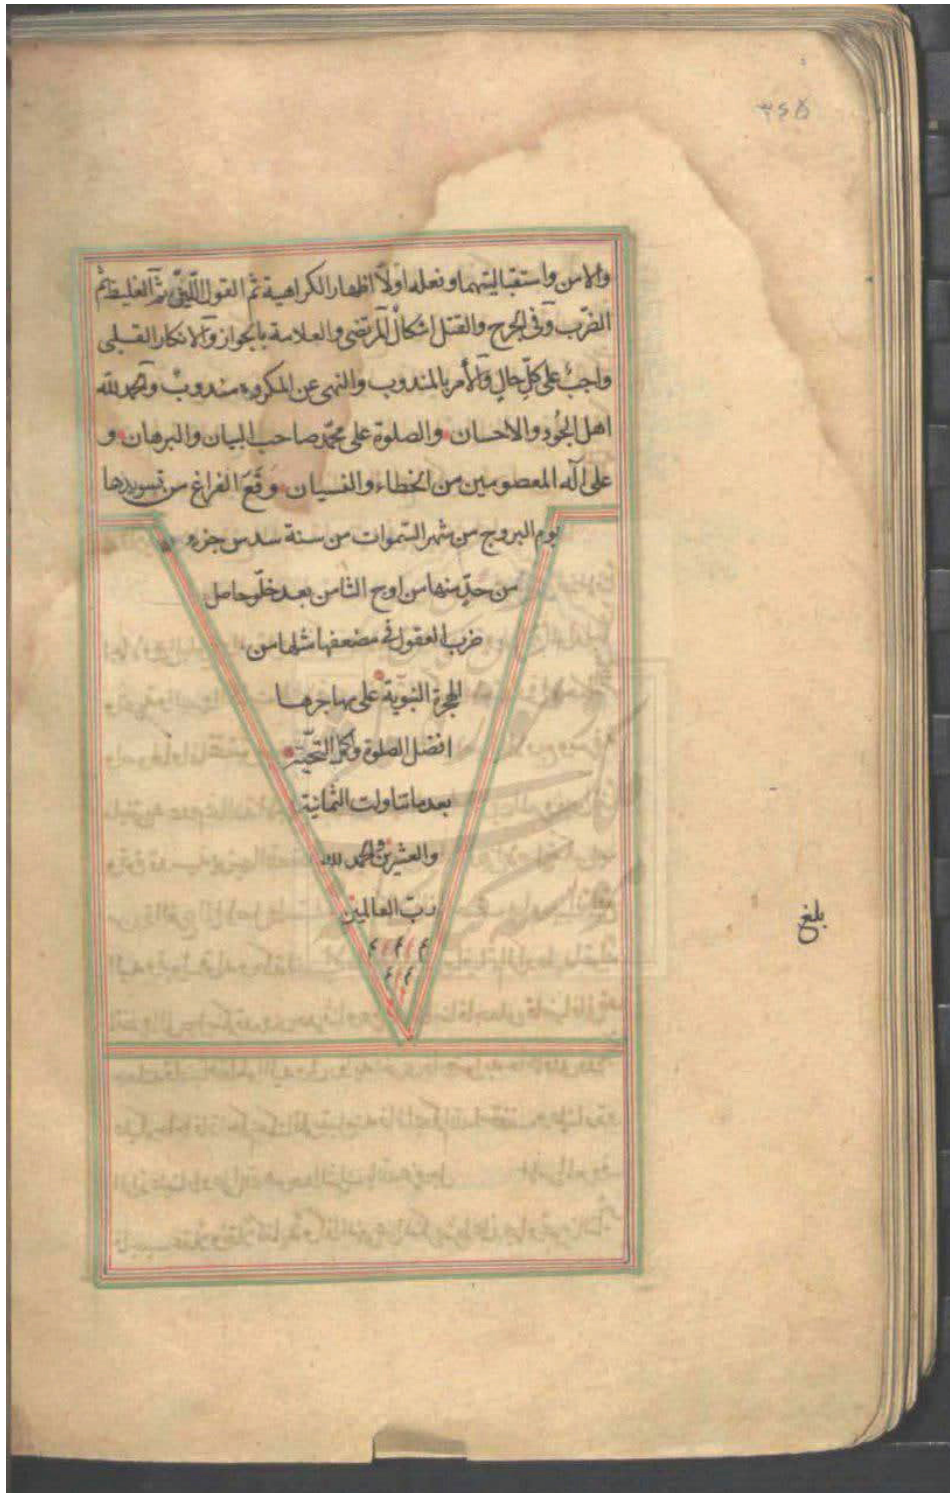 ۳۶۵
والامن واستقباليتهما ونعله اولاً اظهار الكراهية ثم القول الليّن ثم الغليظ ثم
الضرب وفى الجرح والقتل اشكال المرتضى والعلامة بالجواز والانكار القلبى
واجب على كلّ حالٍ والأمر بالمندوب والنهى عن المكروه مندوب والحمد لله
اهل الجُود والاحسان والصلوة على محمّد صاحب البيان والبرهان و
على آله المعصومين من الخطاء والنسيان وَقَعَ الفراغ من تسويدها
يوم البروج من شهر السّموات من سنة سدس جزء
من حدّ منها من اوج الثامن بعد حاصل
ضرب العقول فى مضعفها من
الهجرة النبويّة على مهاجرها
افضل الصلوة واكمل التحيّة
بعد ما تناولت الثمانية
والعشرين والحمد لله
ربّ العالمين
م م م م
م م
بلغ